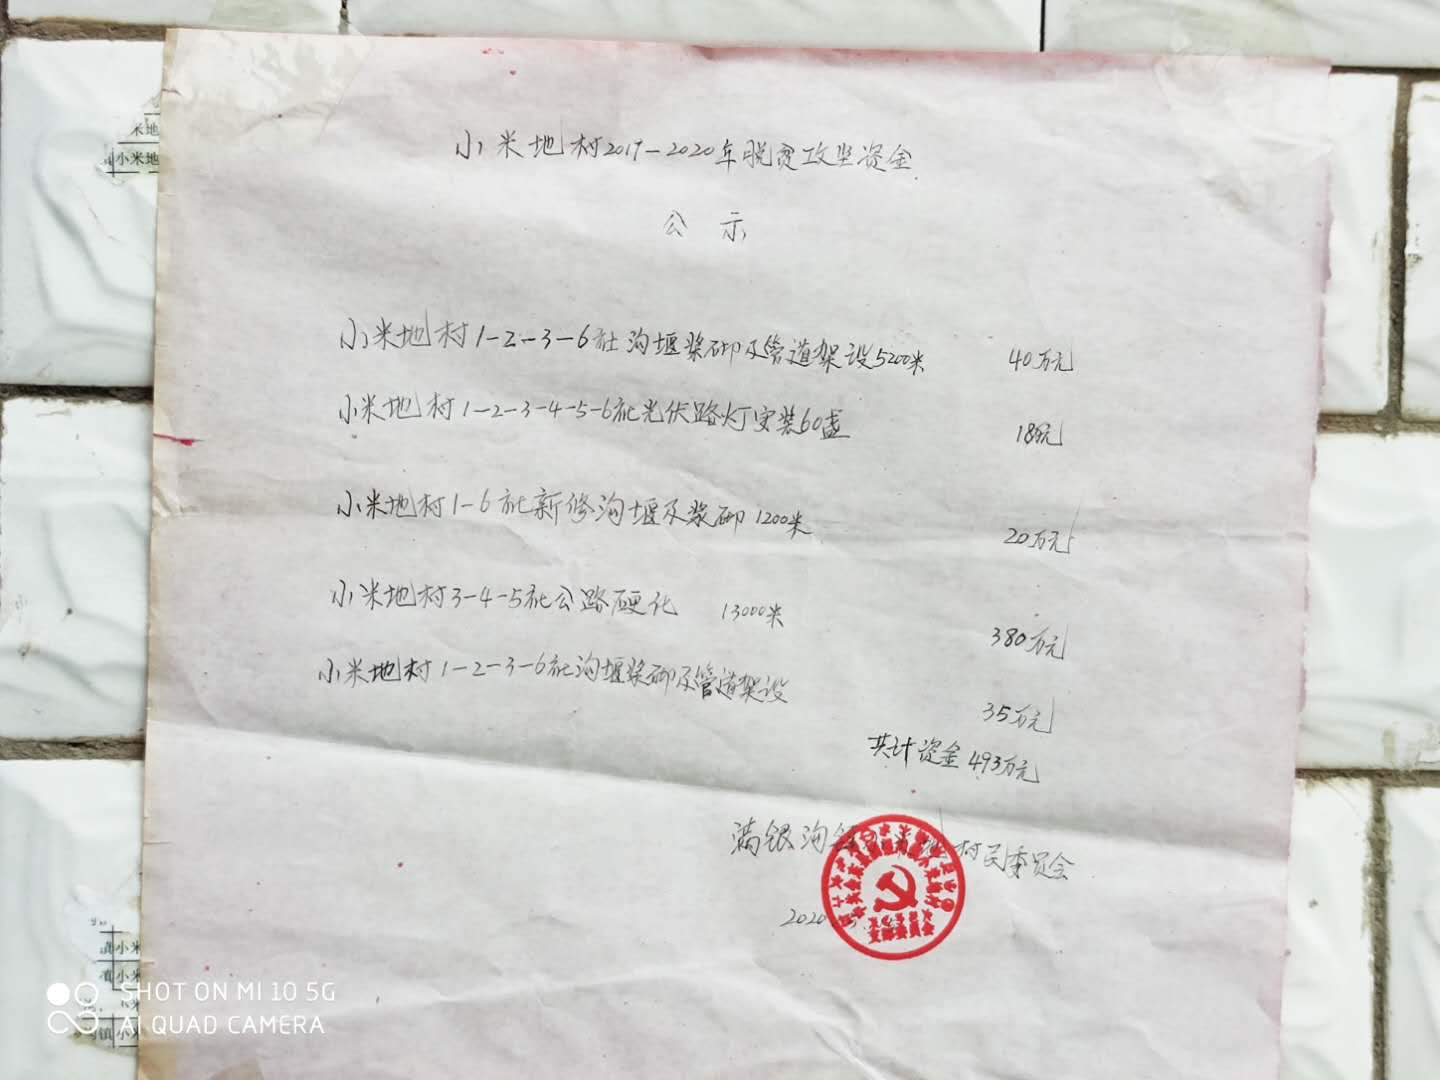 小米地村2019-2020年脱贫攻坚资金
公示
小米地村1-2-3-6社沟堰浆砌及管道架设5200米 40万元
小米地村1-2-3-4-5-6社光伏路灯安装60盏 18万元
小米地村1-6社新修沟堰及浆砌1200米 20万元
小米地村3-4-5社公路硬化 13000米 380万元
小米地村1-2-3-6社沟堰浆砌及管道架设 35万元
共计资金493万元
满银沟镇小米地村民委员会
2020
支部委员会
米地
小米地
小米
小米
镇 小米
SHOT ON MI 10 5G
AI QUAD CAMERA